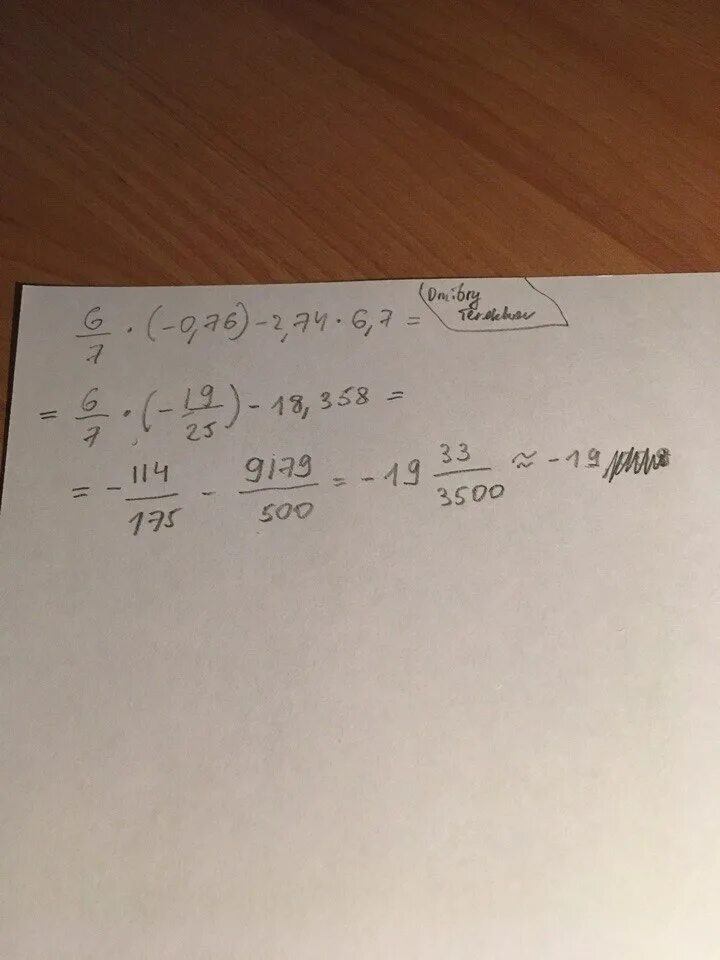 6/7 · (-0,76) - 2,74 · 6,7 =
Dmitry
= 6/7 · (- 19/25) - 18,358 =
= - 114/175 - 9179/500 = -19 33/3500 ≈ -19